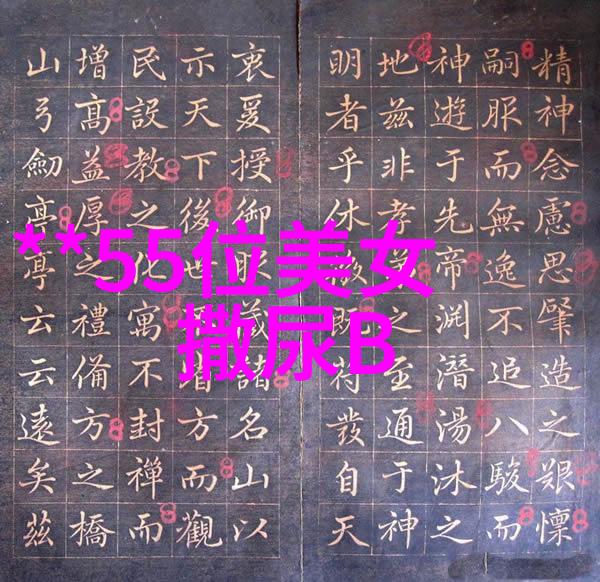 精神念慮思肇造之艱懍
嗣服而無逸不追八駿而
神遊于先帝淵潛湯沐之
地茲非孝之至通于神
明者乎休徵既符發自天
衷爰授御諸名山以
示天下後世方而觀
民設教之化寓不封禪而
增高益厚之禮備方之橋
山弓劒亭亭云云遠矣茲
**55位美女
撒尿B